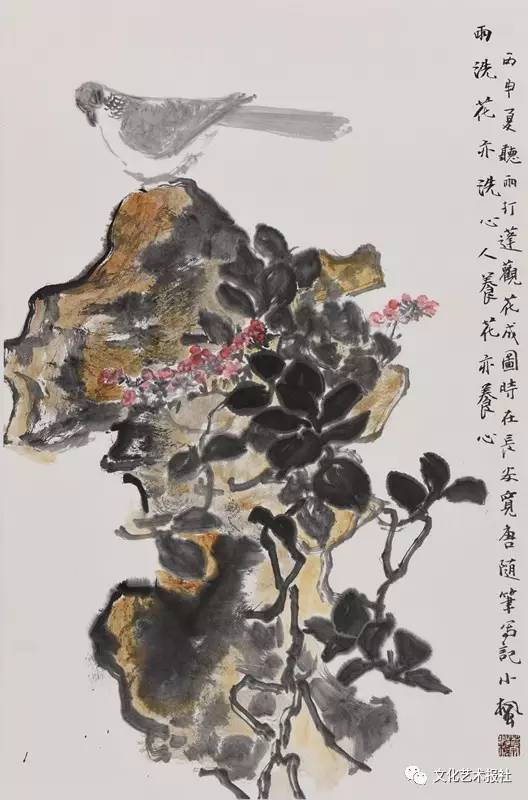 雨洗花亦洗心人養花亦養心
丙申夏聽雨打蓬觀花成圖時在長安寬唐隨筆写記小楓
文化艺术报社